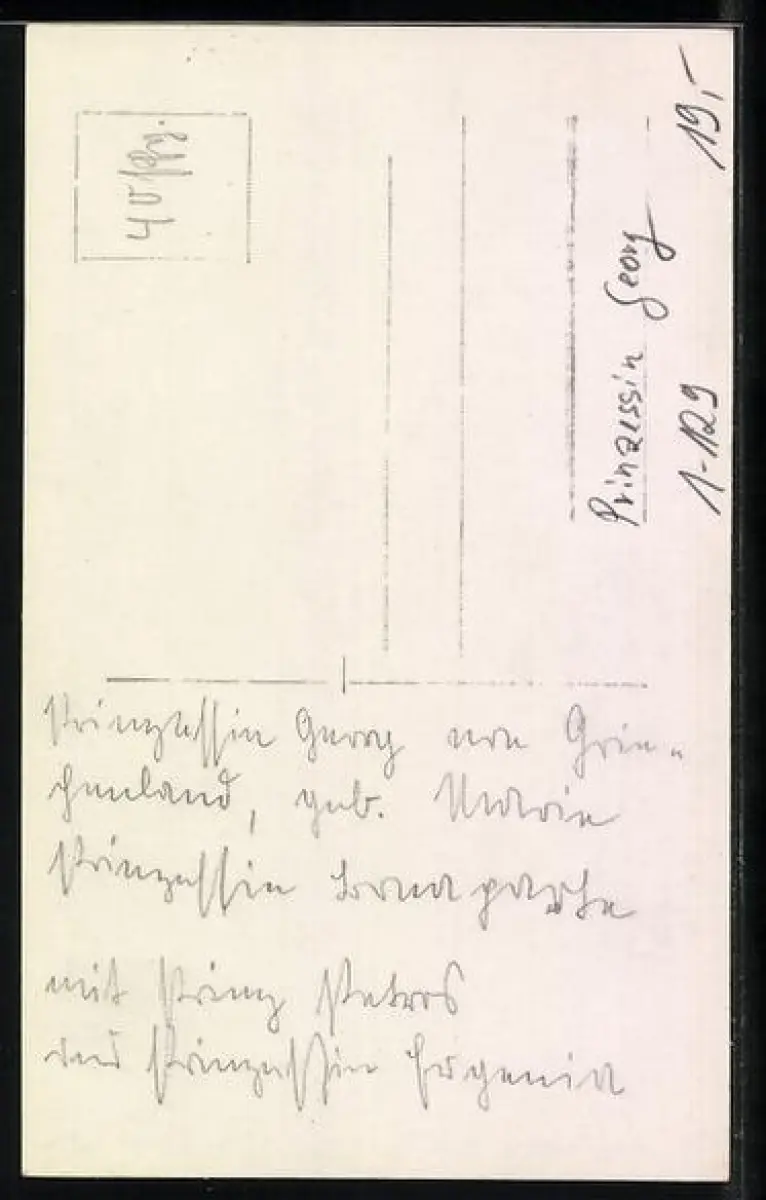 40 Pfg.
19,-
Prinzessin Georg
1-129
Prinzessin Georg von Grie-
chenland, geb. Marie
Prinzessin Bonaparte
mit Prinz Petros
und Prinzessin Eugenia